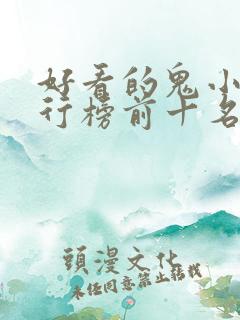 好看的鬼小
行榜前十名
頭漫文化
未经同意禁止转载